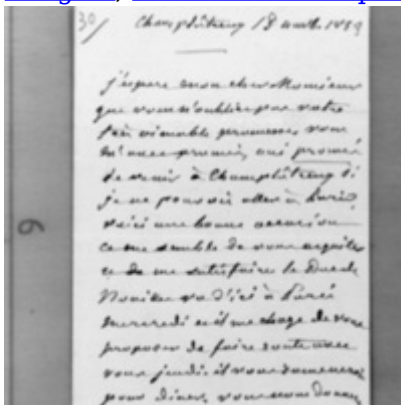 30/ Champlâtreux 18 août 1859
j'espère mon cher Monsieur
que vous n'oubliez pas votre
très aimable promesse, vous
m'avez promis, oui promis
de venir à Champlâtreux si
je ne pouvois aller à Paris
voici une bonne occasion
ce me semble de vous acquitter
et de me satisfaire le Duc de
Noailles va d'ici à Paris
mercredi et il me charge de vous
proposer de faire route avec
vous jeudi. il vous
pour diner, vous